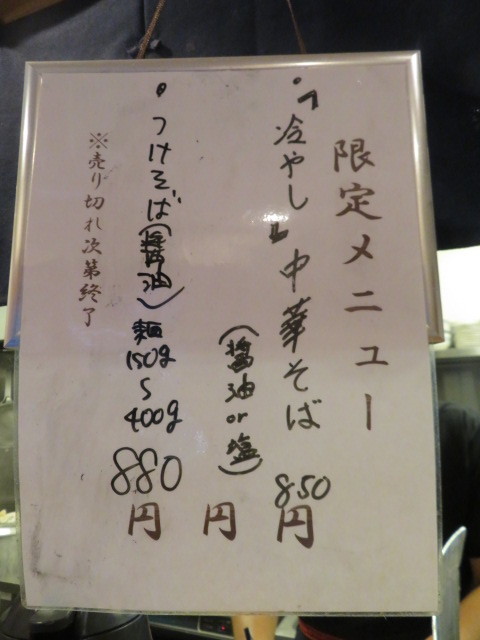 限定メニュー
・「冷やし」中華そば 850円
(醤油or塩) 円
・つけそば(醤油)麺150g〜400g 880円
※売り切れ次第終了